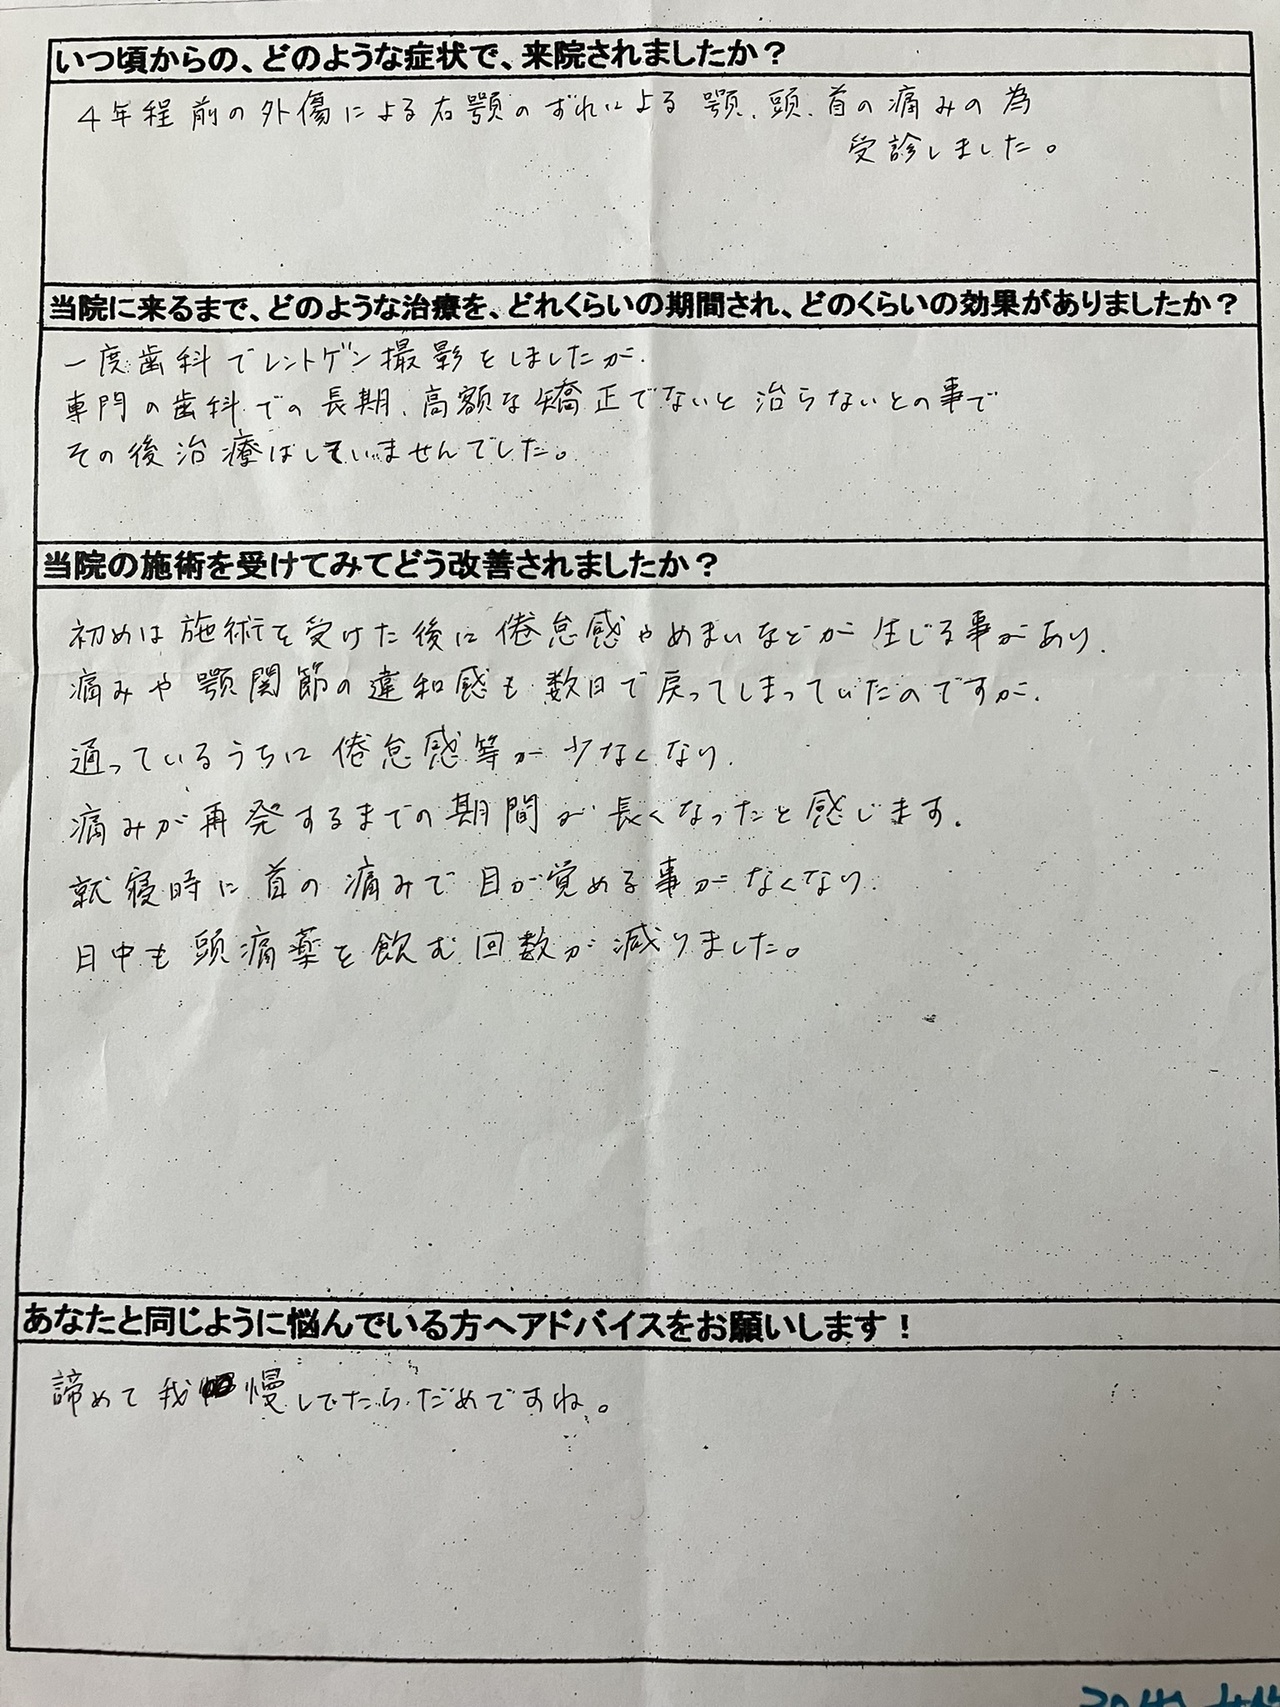 いつ頃からの、どのような症状で、来院されましたか？
4年程前の外傷による右顎のずれによる顎、頭、首の痛みの為
受診しました。
当院に来るまで、どのような治療を、どれくらいの期間され、どのくらいの効果がありましたか？
一度歯科でレントゲン撮影をしましたが、
専門の歯科での長期、高額な矯正でないと治らないとの事で
その後治療はしていませんでした。
当院の施術を受けてみてどう改善されましたか？
初めは施術を受けた後に倦怠感やめまいなどが生じる事があり、
痛みや顎関節の違和感も数日で戻ってしまっていたのですが、
通っているうちに倦怠感等が少なくなり、
痛みが再発するまでの期間が長くなったと感じます。
就寝時に首の痛みで目が覚める事がなくなり、
日中も頭痛薬を飲む回数が減りました。
あなたと同じように悩んでいる方へアドバイスをお願いします！
諦めて我慢してたらだめですね。